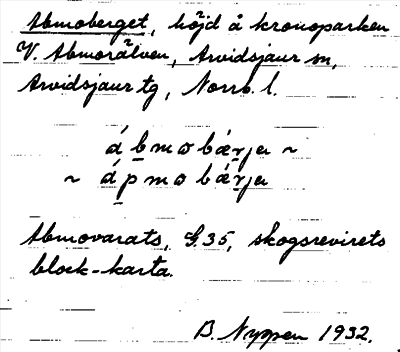 Abmoberget, höjd å kronoparken
V. Abmorälven, Arvidsjaur sn,
Arvidsjaur tg, Norrb. l.
áb̲mɷbǽr̲ja ~
~ áp̲mɷbǽr̲ja
Abmovarats, G.35, skogsrevirets
block-karta.
B. Nyppen 1932.